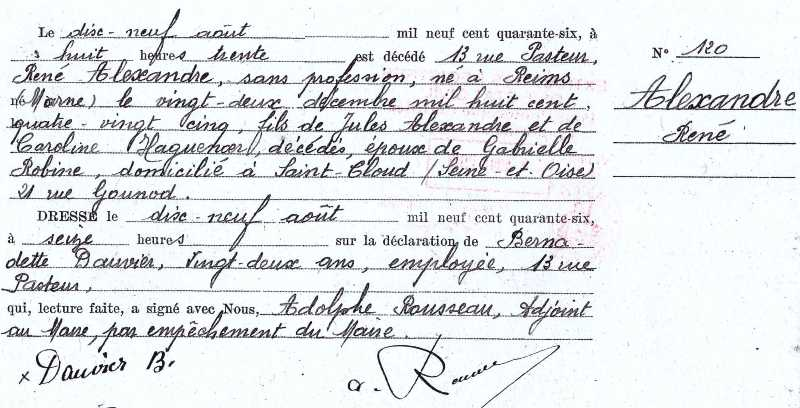 Le disc-neuf août mil neuf cent quarante-six, à
huit heures trente est décédé 13 rue Pasteur,
René Alexandre, sans profession, né à Reims
(Marne) le vingt-deux décembre mil huit cent
quatre-vingt cinq, fils de Jules Alexandre et de
Caroline Haguenoer, décédés, époux de Gabrielle
Robine, domicilié à Saint-Cloud (Seine-et-Oise)
21 rue Gounod.
DRESSÉ le disc-neuf août mil neuf cent quarante-six,
à seize heures sur la déclaration de Berna-
dette Dauvier, vingt-deux ans, employée, 13 rue
Pasteur,
qui, lecture faite, a signé avec Nous, Adolphe Rousseau, Adjoint
au Maire, par empêchement du Maire.
x Dauvier B.
N° 120
Alexandre
René